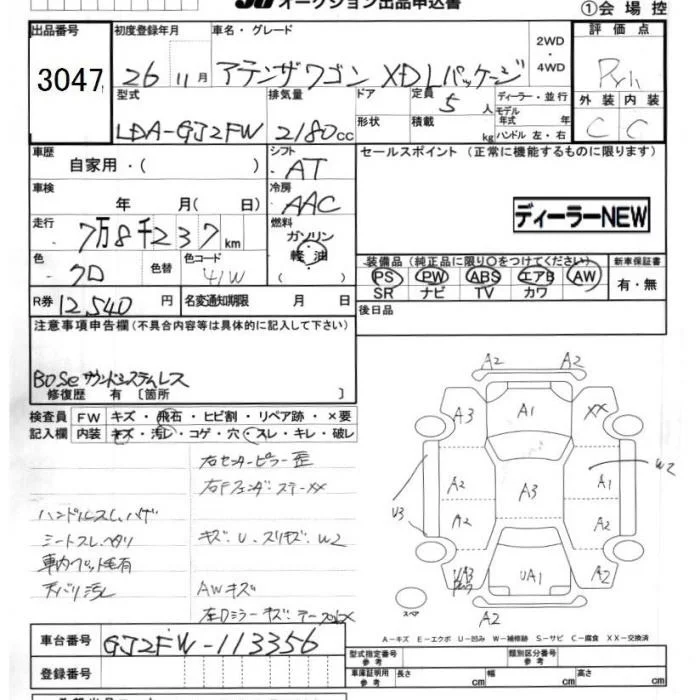 オークション出品申込書
①会場控
出品番号 3047
初度登録年月 26 11月
車名・グレード アテンザワゴン XDLパッケージ
2WD・4WD
評価点
外装 内装
C C
型式 LDA-GJ2FW
排気量 2180cc
ドア 形状
定員 5人
積載 kg
ディーラー・並行
モデル年式 年
ハンドル 左・右
車歴 自家用・( )
シフト AT
セールスポイント (正常に機能するものに限ります)
車検 年 月( 日)
冷房 AAC
ディーラーNEW
走行 7万8千237km
燃料 ガソリン 軽油 ( )
色 クロ 色替
色コード 41W
装備品(純正品に限り○をつけてください)
PS PW ABS エアB AW
SR ナビ TV カワ
新車保証書 有・無
R券 12,540円
名変通知期限 月 日
後日品
注意事項申告欄(不具合内容等は具体的に記入して下さい)
BOSEサウンドシステムレス
修復歴 有〔箇所 〕
検査員 FW キズ・飛石・ヒビ割・リペア跡・×要
記入欄 内装 キズ・汚れ・コゲ・穴・スレ・キレ・破レ
右センターピラー歪
ハンドルスレ、ハゲ
シートスレ、ヘタリ
キズ・U・スリキズ・W2
天バリ汚れ
AWキズ
A2 A2
A3 A1 XX
A2 A3 A1 W2
U3 A2 A2
UA1 A2
スペア
A2
A－キズ E－エクボ U－凹み W－補修跡 S－サビ C－腐食 XX－交換済
車台番号 GJ2FW-113356
登録番号
型式指定番号 参考
類別区分番号 参考
車庫証明用 参考 長さ cm 幅 cm 高さ cm